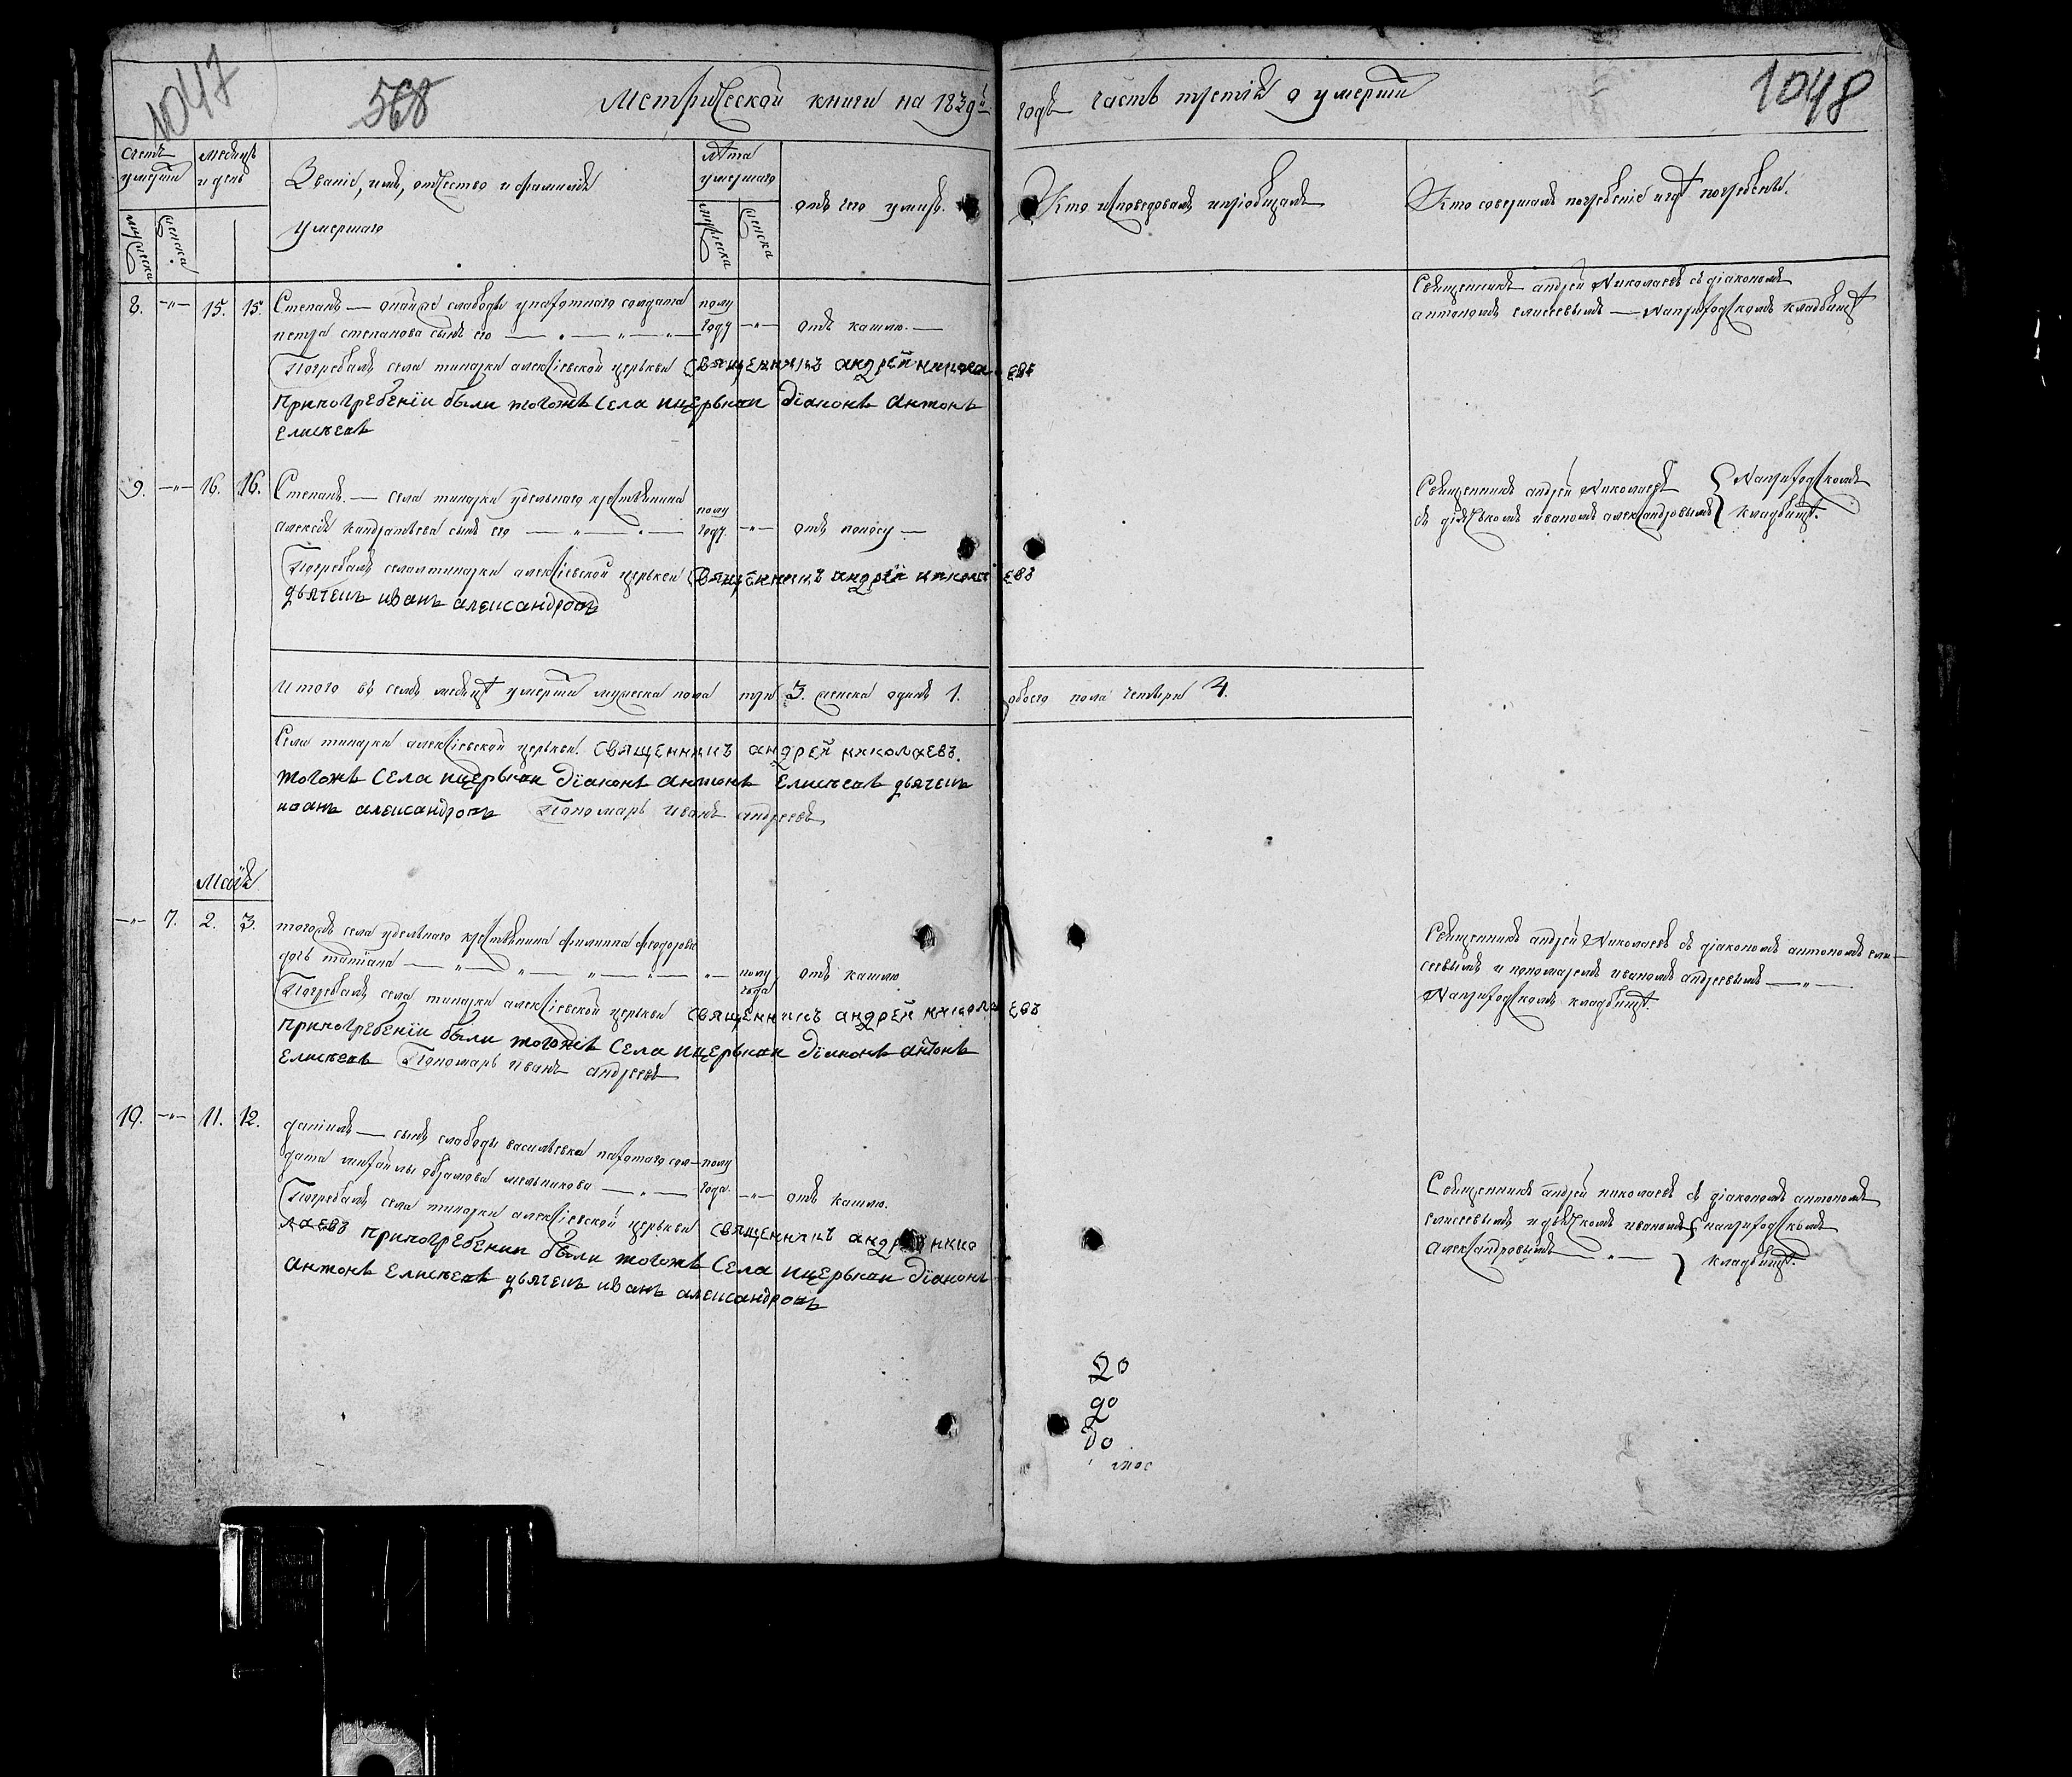 1047
568
Метрической книги на 1839й
годъ часть третія о умершихъ
1048
Счетъ умершихъ
мужеска
женска
месяцъ и день
Званіе, имя, отчество и фамилія
умершаго
лѣта умершаго
мужеска
женска
отъ чего умеръ.
Кто исповедовалъ и пріобщалъ
Кто совершалъ погребеніе и гдѣ погребены.
8. —„— 15. 15. Степанъ — слабоды пахотнаго солдата полу
петра степанова сынъ его году —„— отъ кашлю. —
Погребалъ села тинарки алексіевской церькви Священникъ андрей николаевъ
Припогребеніи были тогожъ села ицерькви діаконъ Антонъ
Елисѣевъ
Священникъ андрей Николаевъ съ діакономъ
антономъ елисеевымъ — Наприходскомъ кладбищѣ
9. —„— 16. 16. Степанъ. — села тинарки удельнаго крестьянина полу
алексѣя кандратьева сынъ его году. —„— отъ поносу —
Погребалъ села тинарки алексіевской церькви Священникъ андрей николаевъ
дьячекъ иванъ александровъ
Священникъ андрей Николаевъ
съ дьячькомъ иваномъ александровымъ
Наприходскомъ
кладбищѣ.
Итого въ семъ месяцѣ умерши мужеска пола три 3. женска одинъ 1. обоего пола четыри 4.
Села тинарки алексіевской церькви. Священникъ андрей николаевъ.
тогожъ села ицерькви діаконъ Антонъ Елисѣевъ дьячекъ
иванъ александровъ Пономарь иванъ андреевъ
Маія
—„— 7. 2. 3. тогожъ села удельнаго крестьянина филиппа феодорова
дочь татіана —„— полу года отъ кашлю
Погребалъ села тинарки алексіевской церькви священникъ андрей николаевъ
припогребеніи были тогожъ села ицерькви діаконъ антонъ
Елисѣевъ Пономарь иванъ андреевъ
Священникъ андрей Николаевъ съ діакономъ антономъ ели-
сеевымъ и пономаремъ иваномъ андреевымъ —„—
Наприходскомъ кладбищѣ.
10. —„— 11. 12. даніилъ — сынъ слабоды васильевка пахотнаго сол- полу
дата михайлы абрамова мельникова —„— года. —„— отъ кашлю.
Погребалъ села тинарки алексіевской церькви священникъ андрей нико
лаевъ припогребении были тогожъ села ицерькви діаконъ
антонъ Елисѣевъ дьячекъ иванъ александровъ
Священникъ андрей николаевъ съ діакономъ антономъ
елисеевымъ и дьячкомъ иваномъ
Александровымъ —„—
наприходскомъ
кладбищѣ.